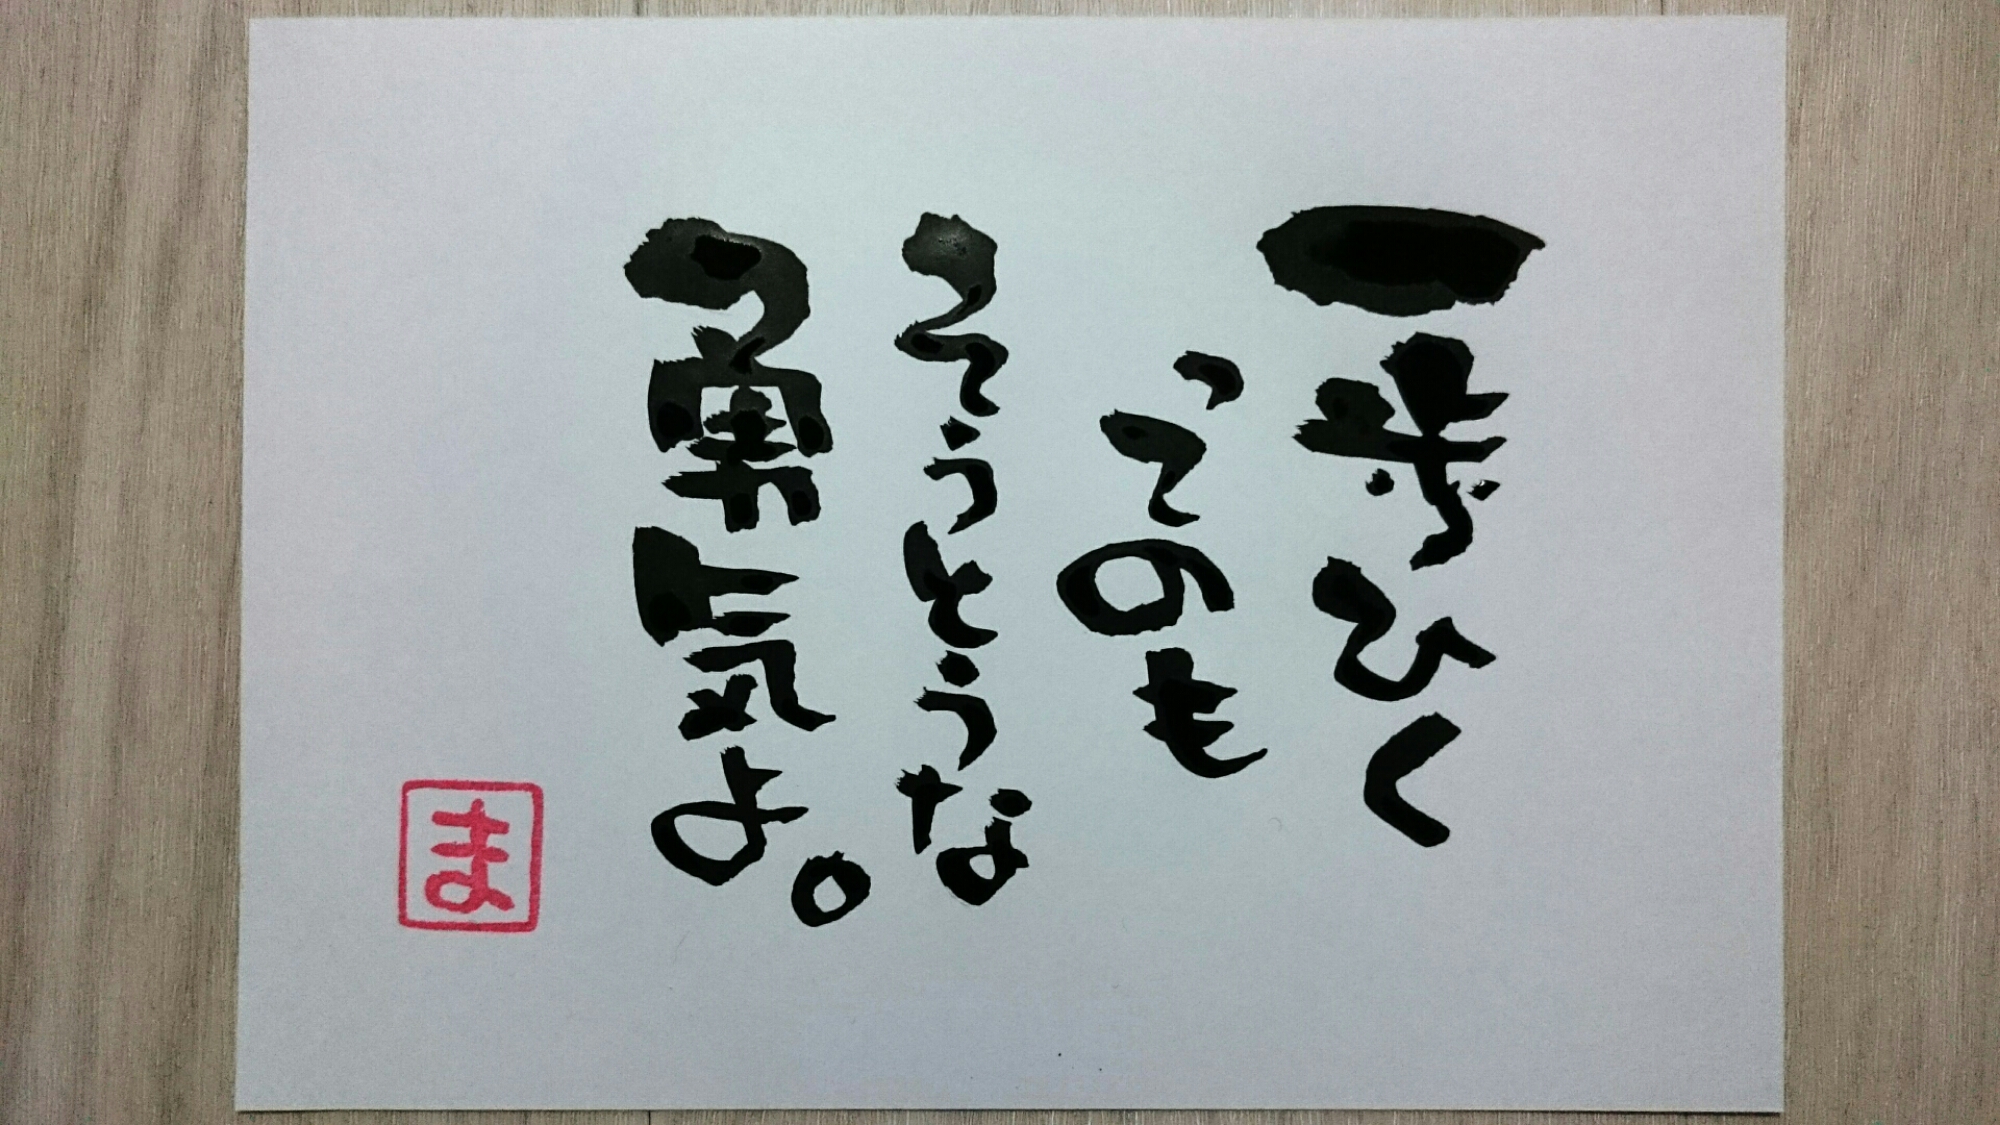 一歩ひく
ってのも
そうとうな
勇気よ。
ま